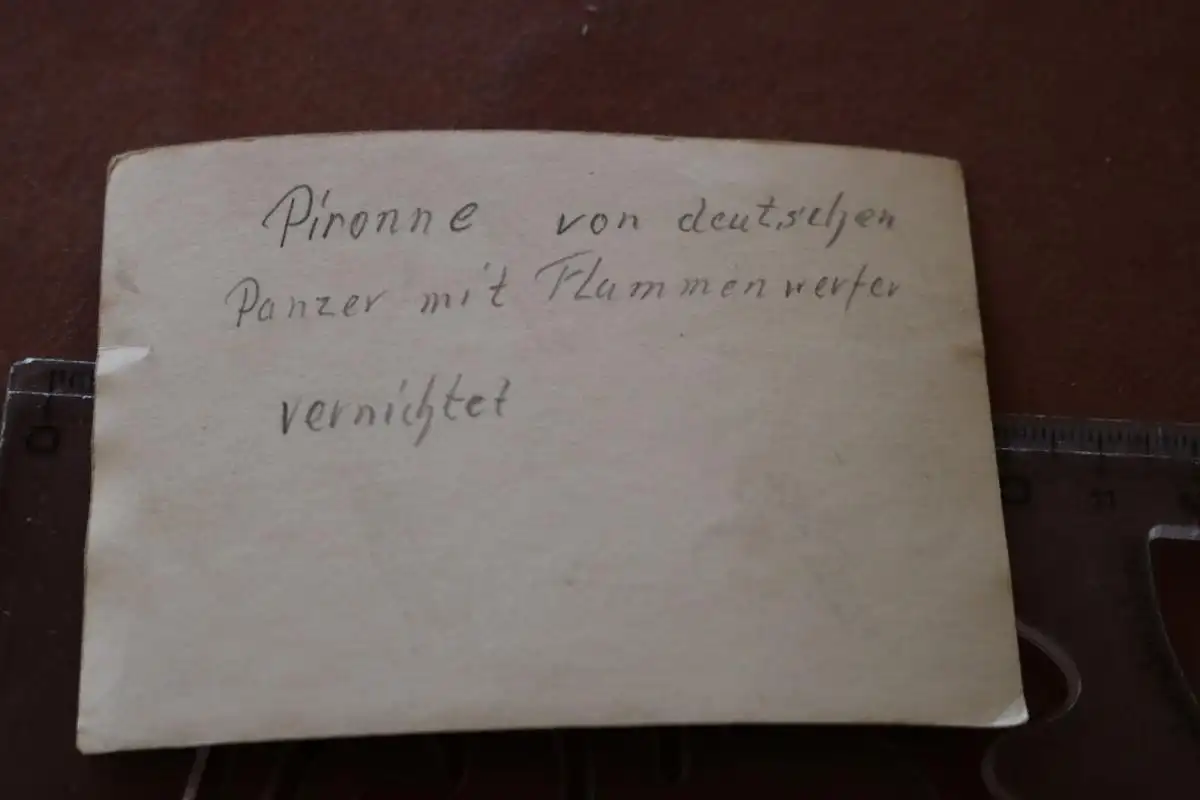 Pironne von deutschen
Panzer mit Flammenwerfer
vernichtet
0
11